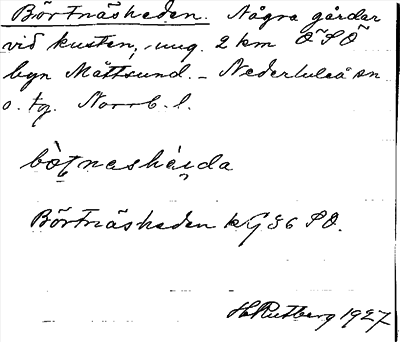 Börtnäsheden. Några gårdar
vid kusten, ung. 2 km ÖSÖ
byn Måttsund. - Nederluleå sn
o. tg. Norrb. l.
bòtnashéida
Börtnäsheden kG 36 SO.
H Rutberg 1927